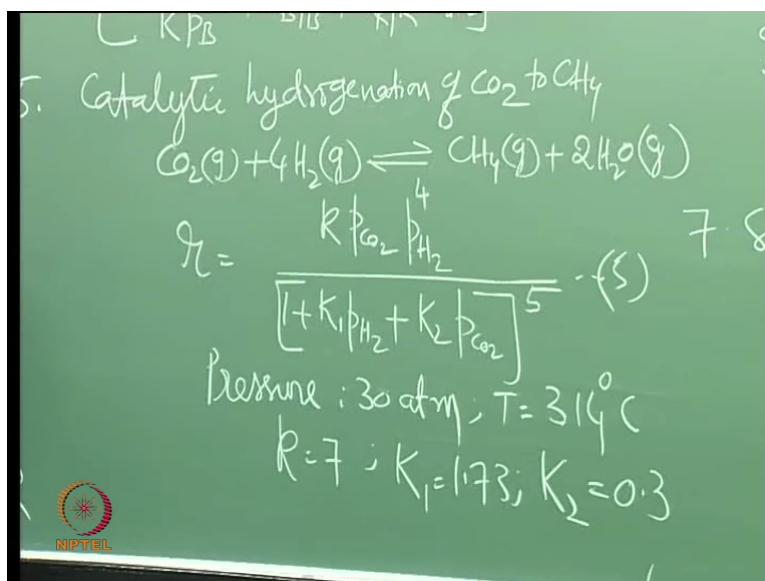 KPB
5. Catalytic hydrogenation of CO2 to CH4
CO2(g) + 4H2(g) ⇌ CH4(g) + 2H2O(g)
r = k pCO2 pH2^4 / [1 + K1 pH2 + K2 pCO2]^5 --(5)
7.8
Pressure : 30 atm ; T = 314°C
k = 7 ; K1 = 1.73 ; K2 = 0.3
NPTEL